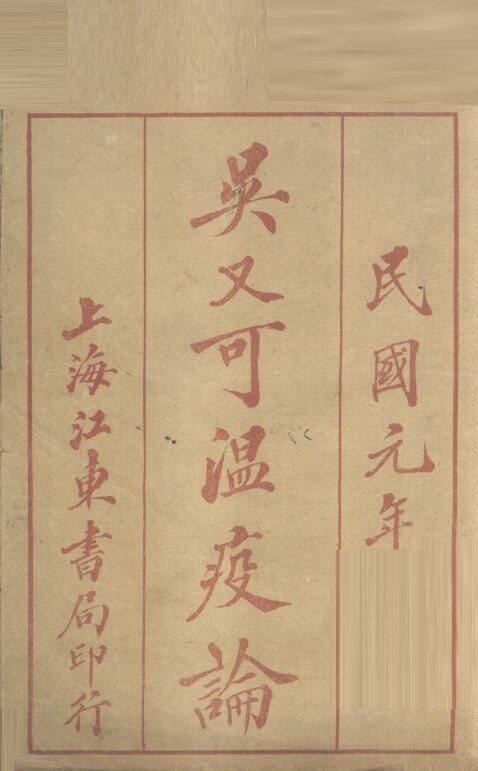 民國元年
吳又可温疫論
上海江東書局印行